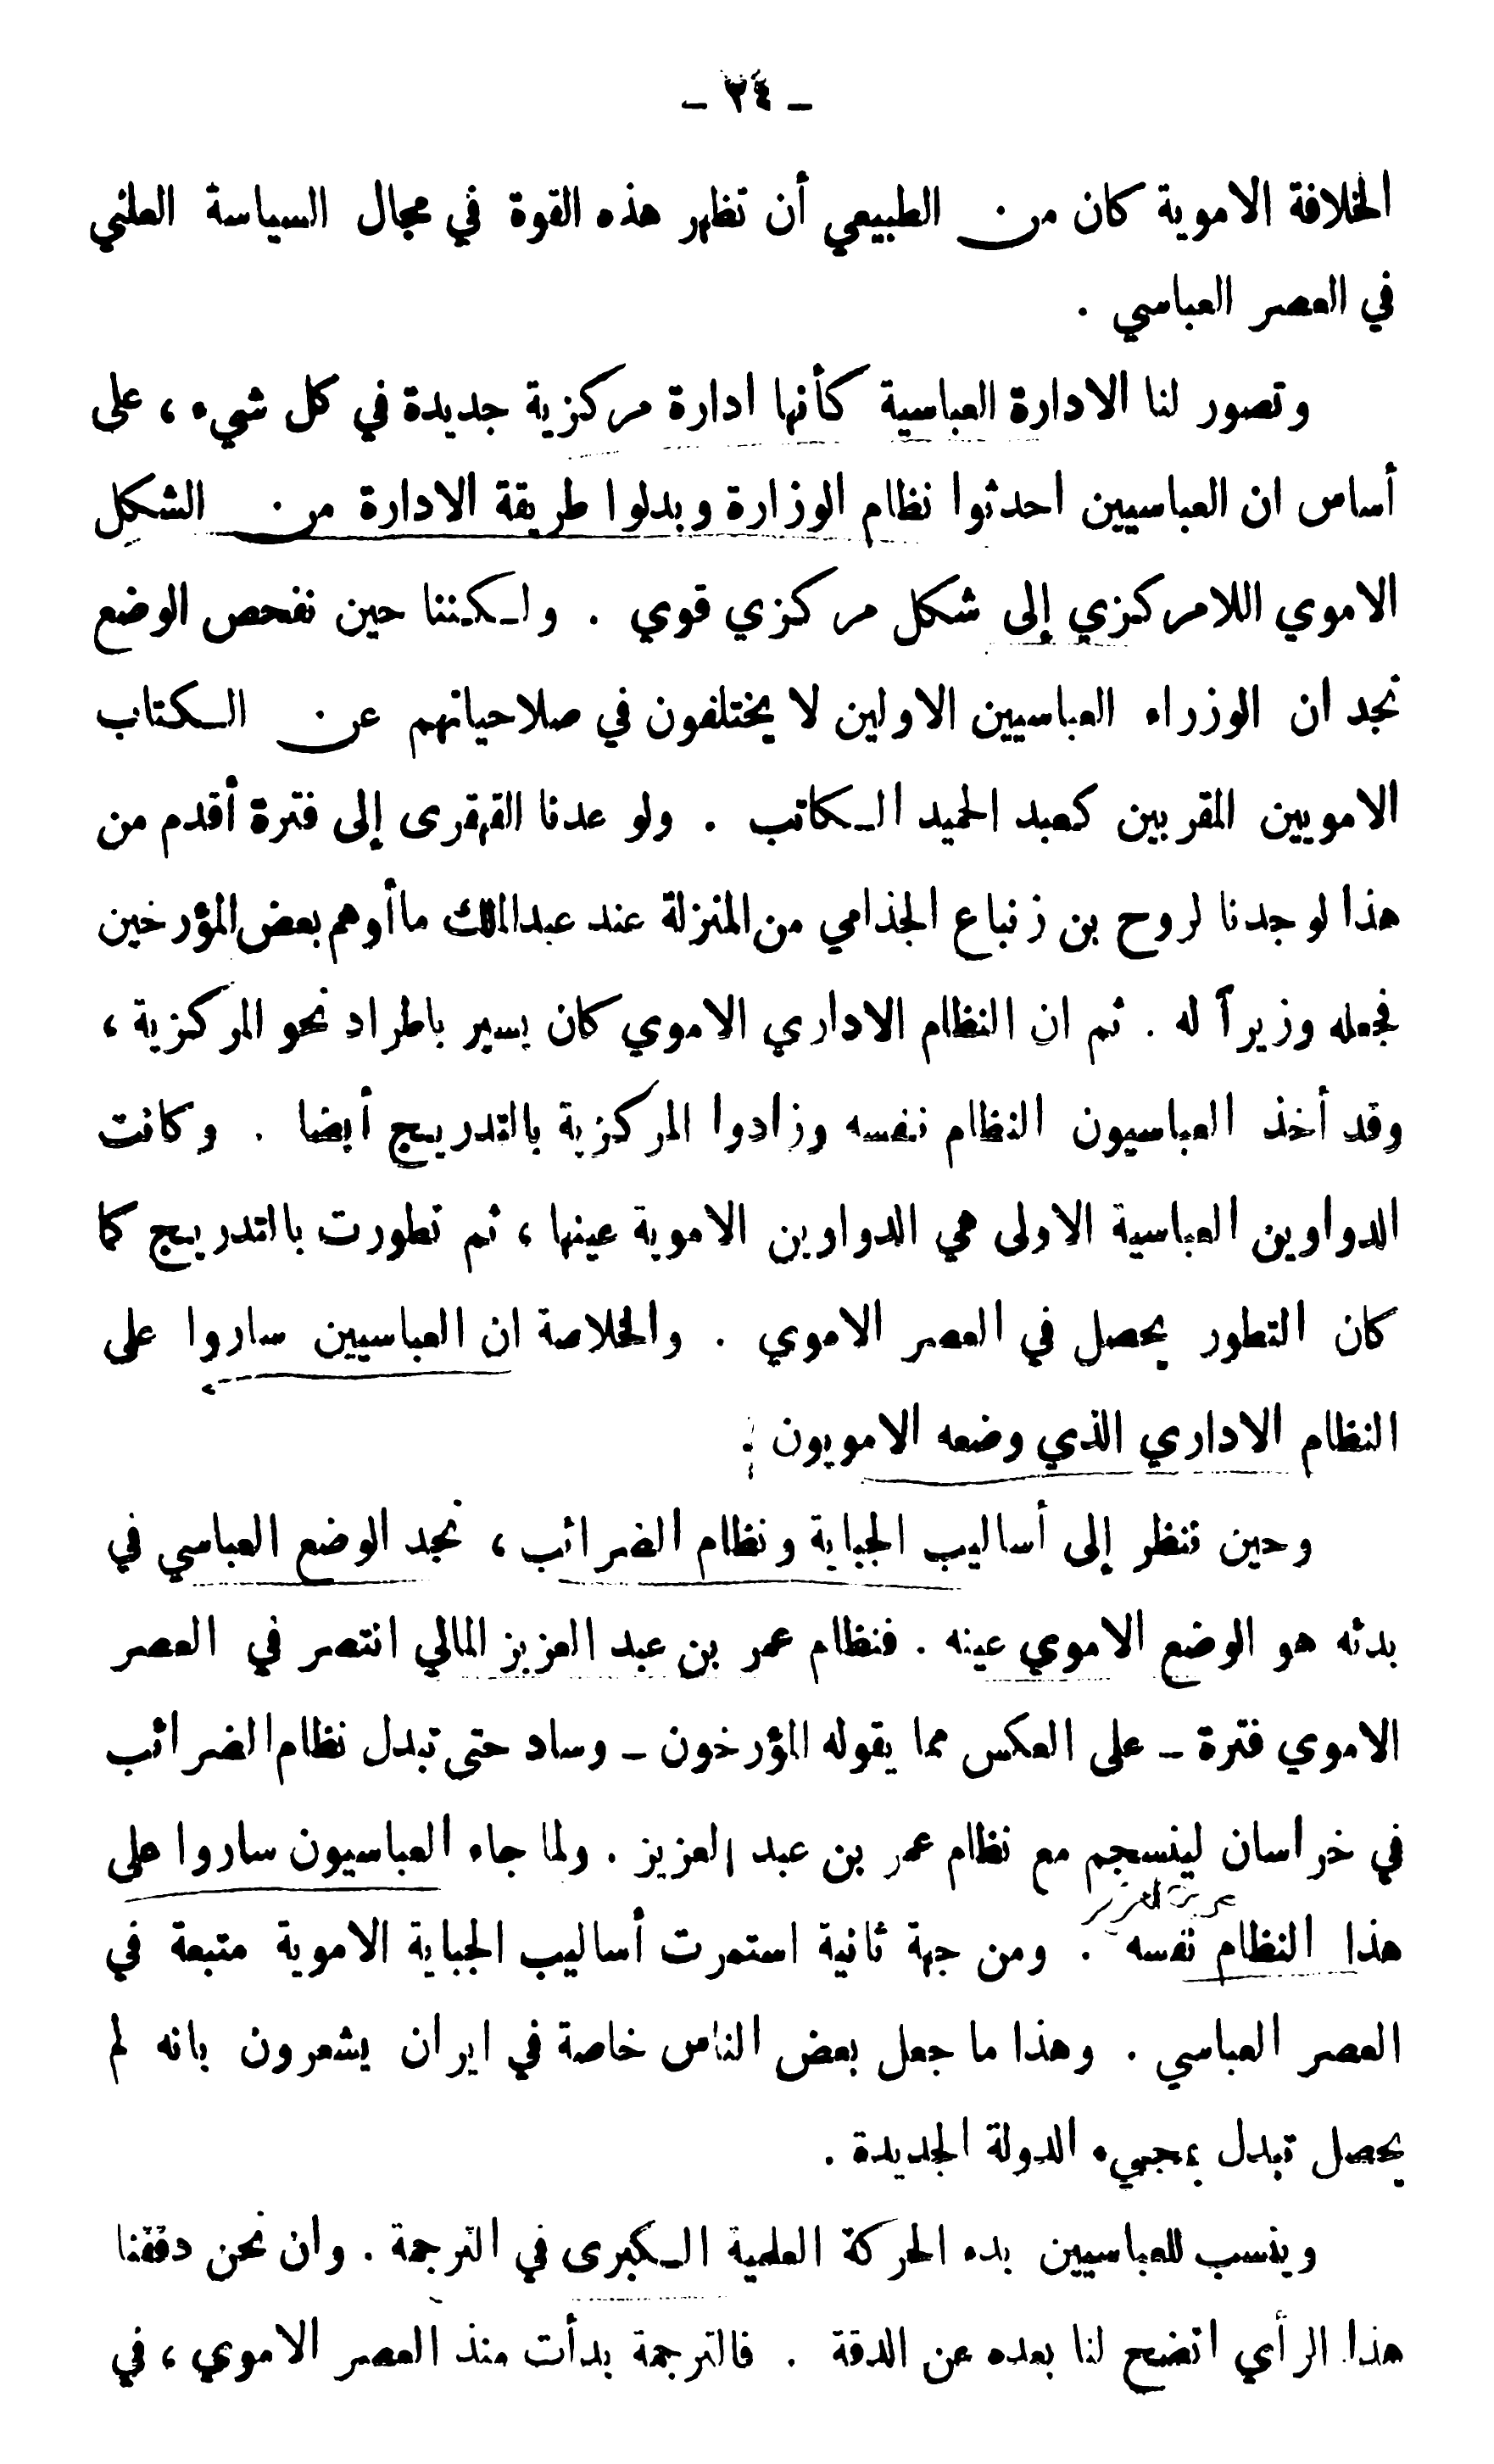 - ٢٤ -
الخلافة الاموية كان من الطبيعي أن تظهر هذه القوة في مجال السياسة العلني
في العصر العباسي .
وتصور لنا الادارة العباسية كأنها ادارة مركزية جديدة في كل شيء ، على
أساس ان العباسيين احدثوا نظام الوزارة وبدلوا طريقة الادارة من الشكل
الاموي اللامركزي إلى شكل مركزي قوي . ولكننا حين نفحص الوضع
نجد ان الوزراء العباسيين الاولين لا يختلفون في صلاحياتهم عن الكتاب
الامويين المقربين كعبد الحميد الكاتب . ولو عدنا القهقرى إلى فترة أقدم من
هذا لوجدنا لروح بن زنباع الجذامي من المنزلة عند عبدالملك ما أوهم بعض المؤرخين
فجعله وزيراً له . ثم ان النظام الاداري الاموي كان يسير باطراد نحو المركزية ،
وقد أخذ العباسيون النظام نفسه وزادوا المركزية بالتدريج أيضا . وكانت
الدواوين العباسية الاولى هي الدواوين الاموية عينها ، ثم تطورت بالتدريج كما
كان التطور يحصل في العصر الاموي . والخلاصة ان العباسيين ساروا على
النظام الاداري الذي وضعه الامويون .
وحين ننظر إلى أساليب الجباية ونظام الضرائب ، نجد الوضع العباسي في
بدئه هو الوضع الاموي عينه . فنظام عمر بن عبد العزيز المالي انتصر في العصر
الاموي فترة - على العكس مما يقوله المؤرخون - وساد حتى تبدل نظام الضرائب
في خراسان لينسجم مع نظام عمر بن عبد العزيز . ولما جاء العباسيون ساروا على
هذا النظام نفسه . ومن جهة ثانية استمرت أساليب الجباية الاموية متبعة في
العصر العباسي . وهذا ما جعل بعض الناس خاصة في ايران يشعرون بانه لم
يحصل تبدل بمجيء الدولة الجديدة .
وينسب للعباسيين بدء الحركة العلمية الكبرى في الترجمة . وان نحن دققنا
هذا الرأي اتضح لنا بعده عن الدقة . فالترجمة بدأت منذ العصر الاموي ، في